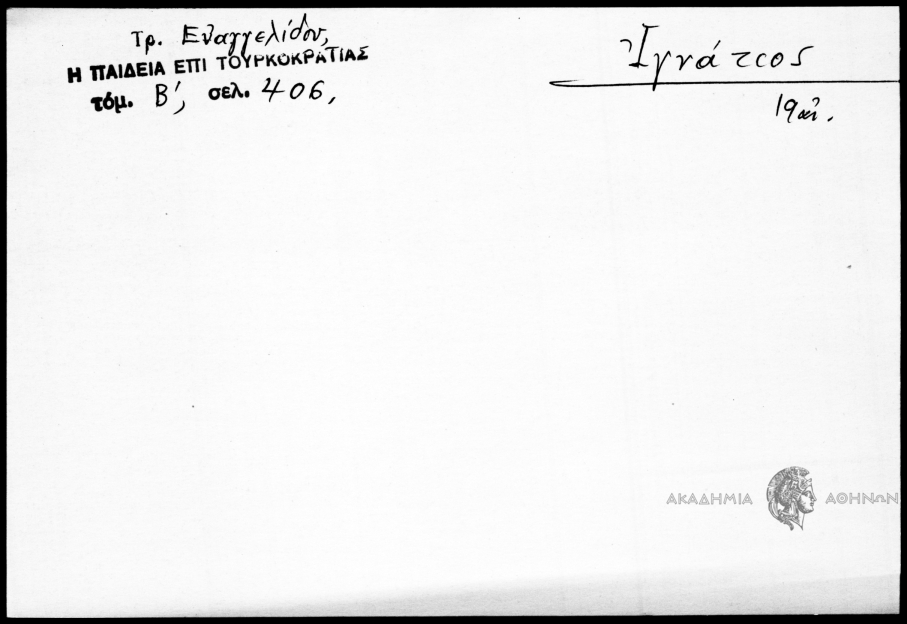 Τρ. Εὐαγγελίδου,
Η ΠΑΙΔΕΙΑ ΕΠΙ ΤΟΥΡΚΟΚΡΑΤΙΑΣ
τόμ. Β΄, σελ. 406,
Ἰγνάτιος
19 αἰ.
ΑΚΑΔΗΜΙΑ ΑΘΗΝΩΝ